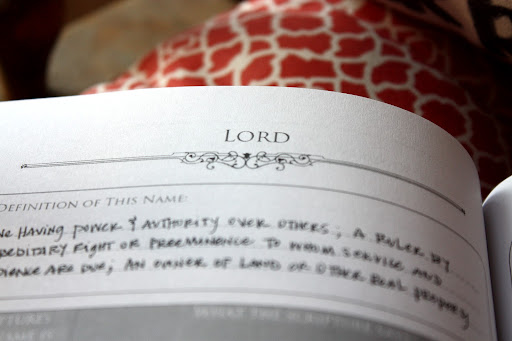 LORD
DEFINITION OF THIS NAME:
HAVING POWER & AUTHORITY OVER OTHERS; A RULER BY
RIGHT OR PREEMINENCE TO WHOM SERVICE AND
ARE DUE; AN OWNER OF LAND OR OTHER REAL PROPERTY
WHAT THIS SCRIPTURE